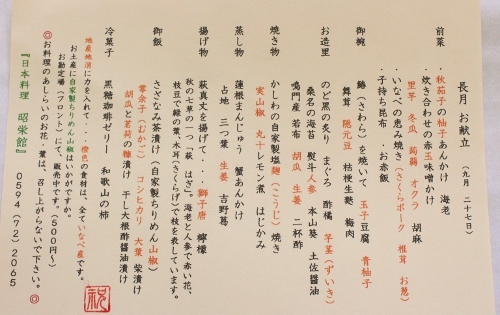 長月 お献立 (九月 二十七日)
前菜
・秋茄子の柚子あんかけ 海老
・炊き合わせの赤玉味噌かけ
里芋 冬瓜 蒟蒻 オクラ 胡麻
・いなべの恵み焼き(さくらポーク 椎茸 お葱)
・子持ち昆布 ・お赤飯
御椀
鰆(さわら)を焼いて 玉子豆腐 青柚子
舞茸 隠元豆 桔梗生麩 梅肉
お造里
のど黒の炙り まぐろ 酢橘 芋茎(ずいき)
桑名の海苔 熨斗人参 本山葵 土佐醤油
鳴門産若布 胡瓜 生姜 二杯酢
焼き物
かしわの自家製塩麹(こうじ)焼き
実山椒 丸十レモン煮 はじかみ
蒸し物
蓮根まんじゅう 蟹あんかけ
占地 三つ葉 生姜 吉野葛
揚げ物
萩真丈を揚げて・・・獅子唐 檸檬
秋の七草の一つ「萩 はぎ」海老と人参で赤い花、
枝豆で緑の葉、木耳(きくらげ)で枝を表しています。
御飯
さざなみ茶漬け(自家製ちりめん山椒)
零余子(むかご) コシヒカリ 大葉 柴漬け
胡瓜と茗荷の糠漬け 干し大根酢醤油漬け
冷菓子
黒糖珈琲ゼリー 和歌山の柿
地産地消に力を入れて・・橙色の食材は、全ていなべ産です。
お土産に自家製ちりめん山椒はいかがですか。
お勘定場(フロント)にて、販売中です。(600円〜)
◎お料理のあしらいのお花・葉は、召し上がらないで下さい。◎
『日本料理 昭栄館』 0594(72)2065
祝